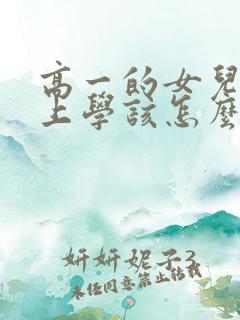 高一的女兒
上學該怎麼
妍妍妮子3
未經同意禁止轉載